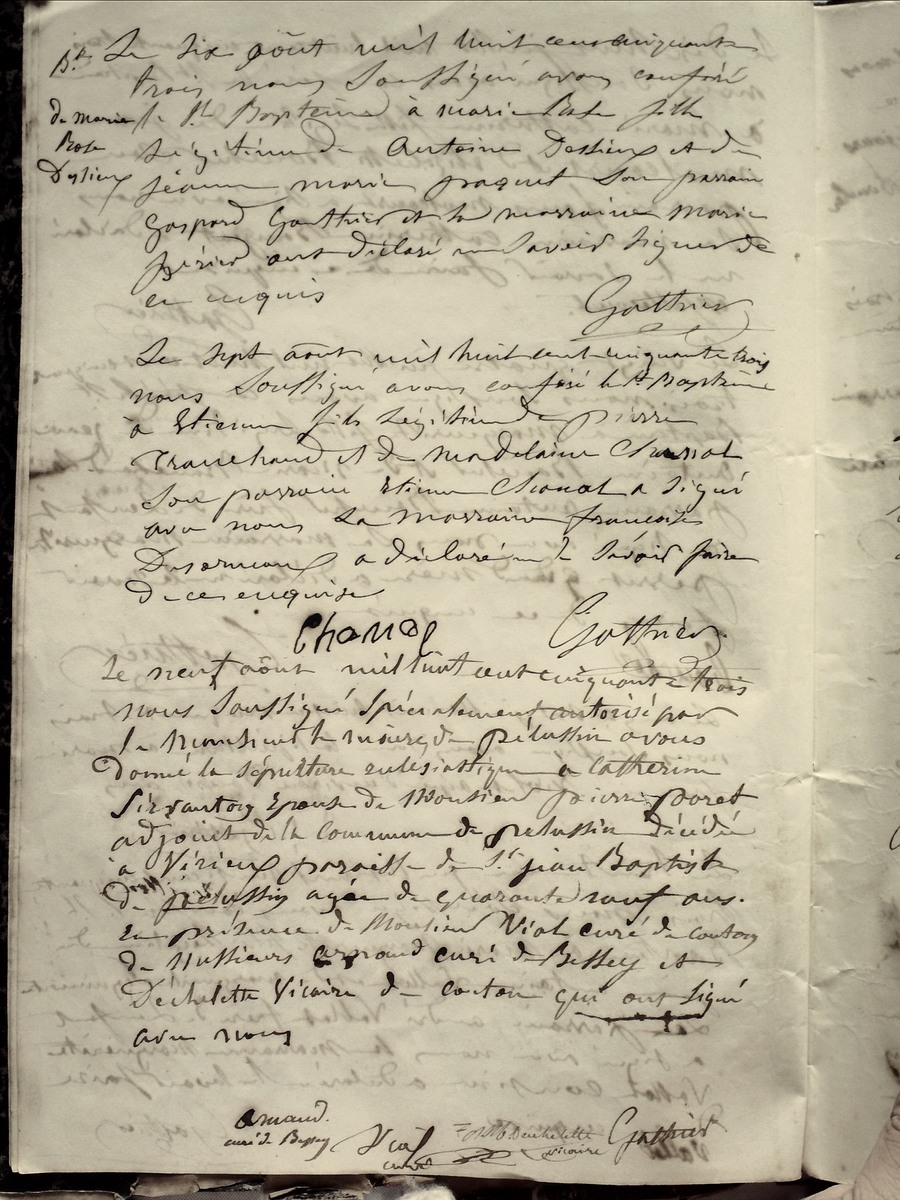 Bt Le six août mil huit cent cinquante
trois nous soussigné avons conféré
de marie le St Baptême à marie Rose fille
Rose
légitime de Antoine Deslieux et de
Deslieux
jéanne marie paquet son parrain
gaspard Gauthier et la marraine marie
périer ont déclaré ne savoir signer de
ce enquis
Gauthier
Le sept août mil huit cent cinquante trois
nous soussigné avons conféré le St Baptême
à Etienne fils légitime de pierre
Tranchand et de madelaine
son parrain Etienne Chanal a signé
avec nous La marraine françoise
a déclaré ne le savoir faire
de ce enquise
Chanal
Gauthier
Le neuf août mil huit cent cinquante trois
nous soussigné spécialement autorisé par
le monsieur le maire de pélussin avons
donné la sépulture eclesiastique a Catherine
Servanton Epouse de Monsieur pierre poret
adjoint de la commune de pelussin décédée
à Vérieux paroisse de St jean Baptiste
de pelussin agée de quarante neuf ans.
En présence de Monsieur Vial curé de canton
de Messieurs arnaud curé de Bessey et
Déchelette Vicaire de canton qui ont signé
avec nous
arnaud
curé de Bessey
Vial
curé
Dechelette
vicaire
Gauthier